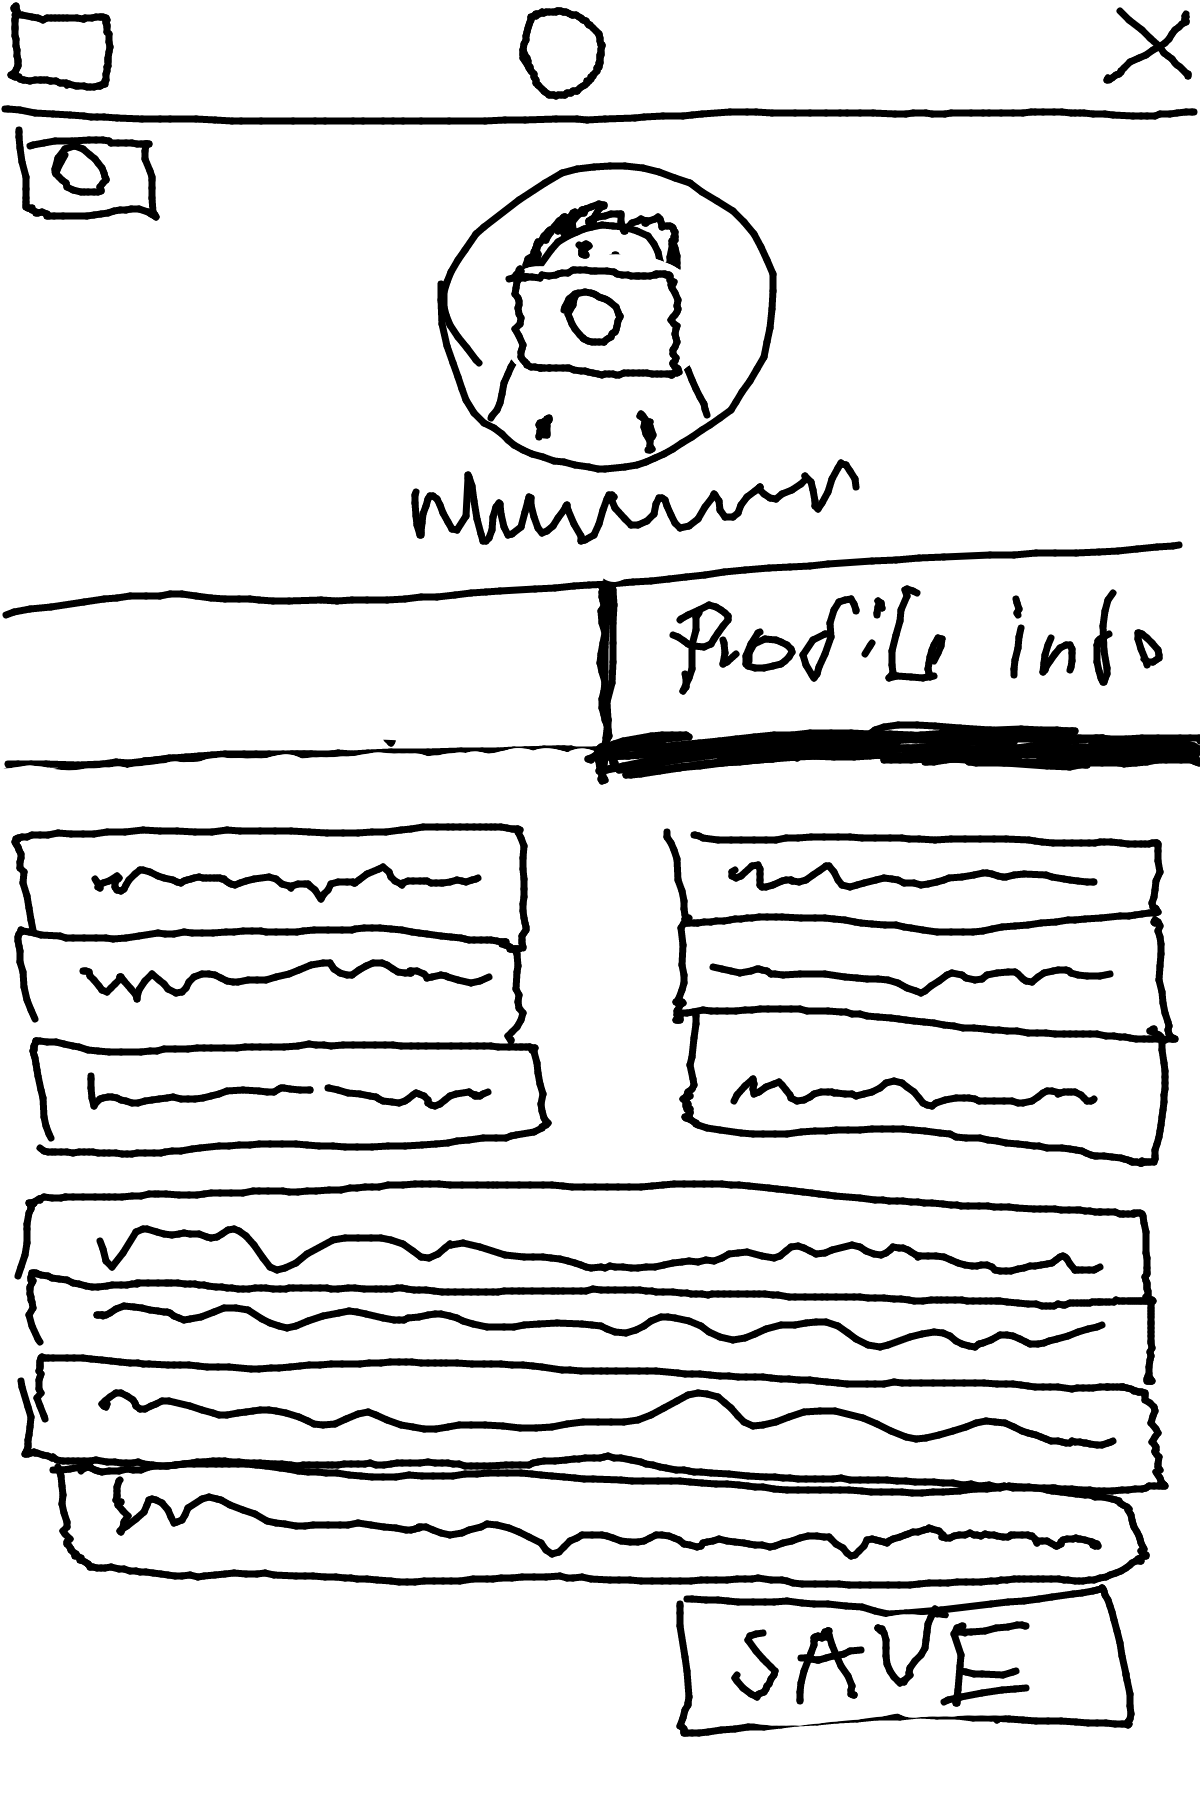 Profile info
SAVE